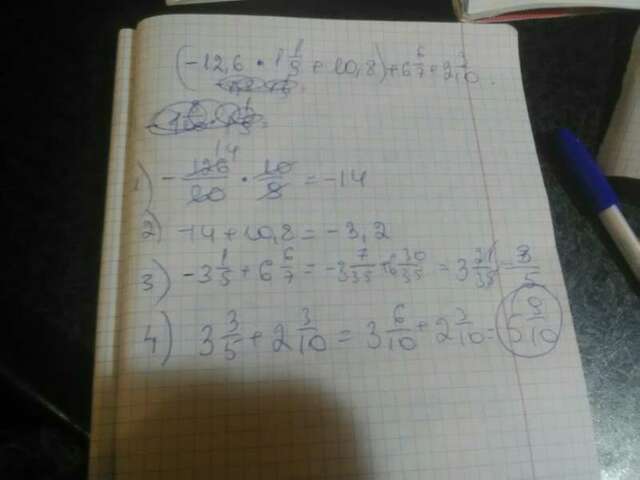 (-12,6 · 1 1/9 + 10,8) + 6 6/7 + 2 3/10.
1) - 126/10 · 10/9 = -14
2) -14 + 10,8 = -3,2
3) -3 1/5 + 6 6/7 = -3 7/35 + 6 30/35 = 3 21/35 = 3/5
4) 3 3/5 + 2 3/10 = 3 6/10 + 2 3/10 = 5 9/10